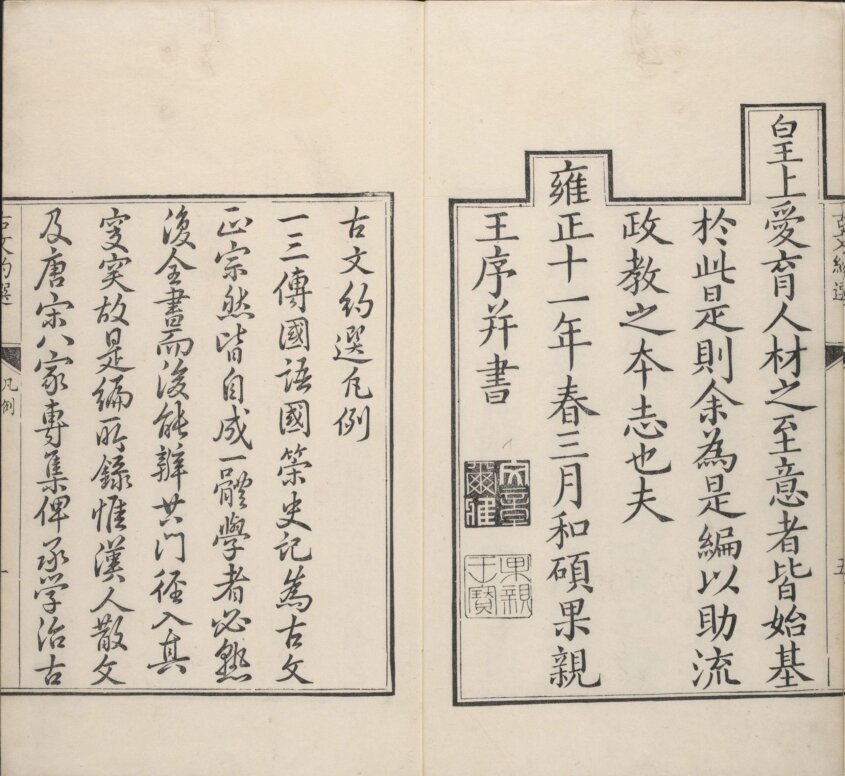 皇上愛育人材之至意者皆始基
於此是則余為是編以助流
政教之本志也夫
雍正十一年春三月和碩果親
王序并書
文章爾雅
果親王寶
古文約選
五
古文約選凡例
一三傳國語國策史記為古文
正宗然皆自成一體學者必熟
復全書而後能辨其門徑入其
窔突故是編所錄惟漢人散文
及唐宋八家專集俾承學治古
古文約選
凡例
一